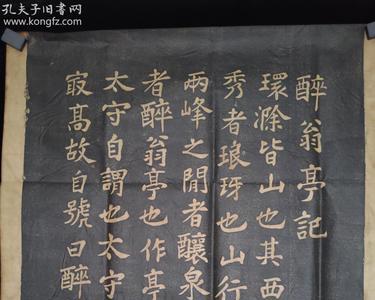 孔夫子旧书网
www.kongfz.com
醉翁亭記
環滁皆山也其西
秀者琅玡也山行
兩峰之間者釀泉
者醉翁亭也作亭
太守自謂也太守
㝡高故自號曰醉